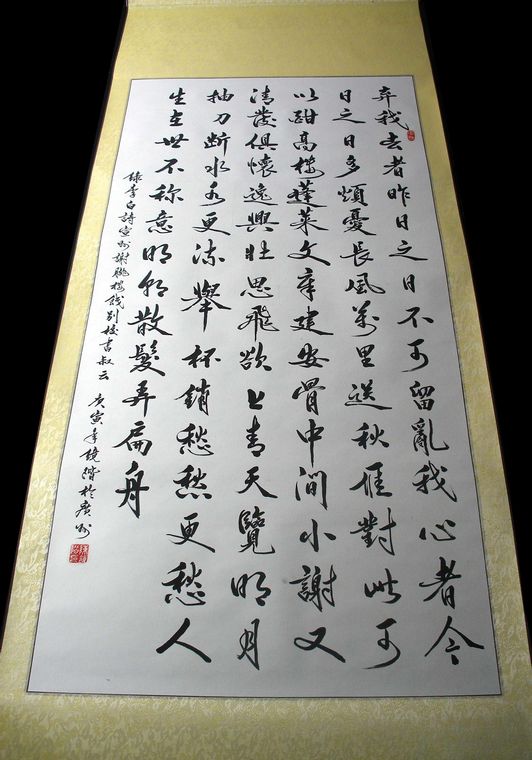 弃我去者昨日之日不可留亂我心者今
日之日多煩憂長風萬里送秋雁對此可
以酣高樓蓬萊文章建安骨中間小謝又
清發俱懷逸興壯思飛欲上青天覽明月
抽刀断水水更流舉杯銷愁愁更愁人
生在世不称意明朝散髮弄扁舟
録李白詩宣州謝朓樓餞別校書叔云 庚寅年於廣州